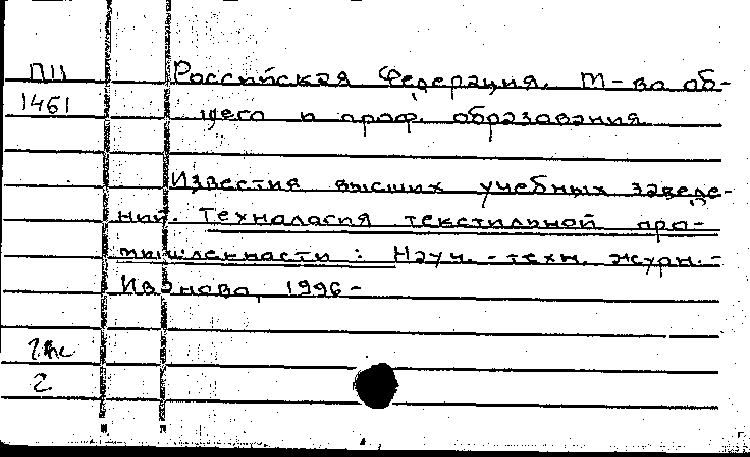 П11 Российская Федерация. М-во об-
1461 щего и проф. образования.
Известия высших учебных заведе-
ний. Технология текстильной про-
мышленности : Науч.-техн. журн. -
Иваново, 1996 -
2